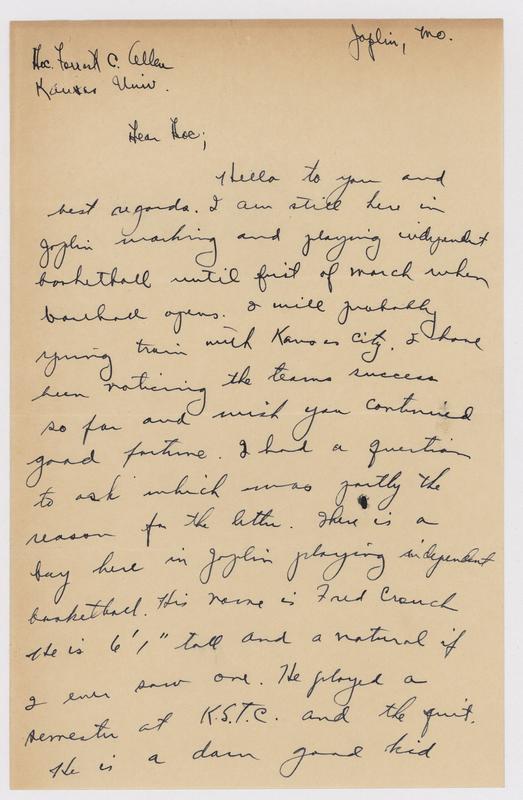 Joplin, Mo.
Doc. Forrest C. Allen
Kansas Univ.
Dear Doc;
Hello to you and
best regards. I am still here in
Joplin working and playing independent
basketball until first of march when
baseball opens. I will probably
spring train with Kansas City. I have
been noticing the teams success
so far and wish you continued
good fortune. I had a question
to ask which was partly the
reason for the letter. There is a
boy here in Joplin playing independent
basketball. His name is Fred Crouch
He is 6'1" tall and a natural if
I ever saw one. He played a
semester at K.S.T.C. and the quit.
He is a darn good kid